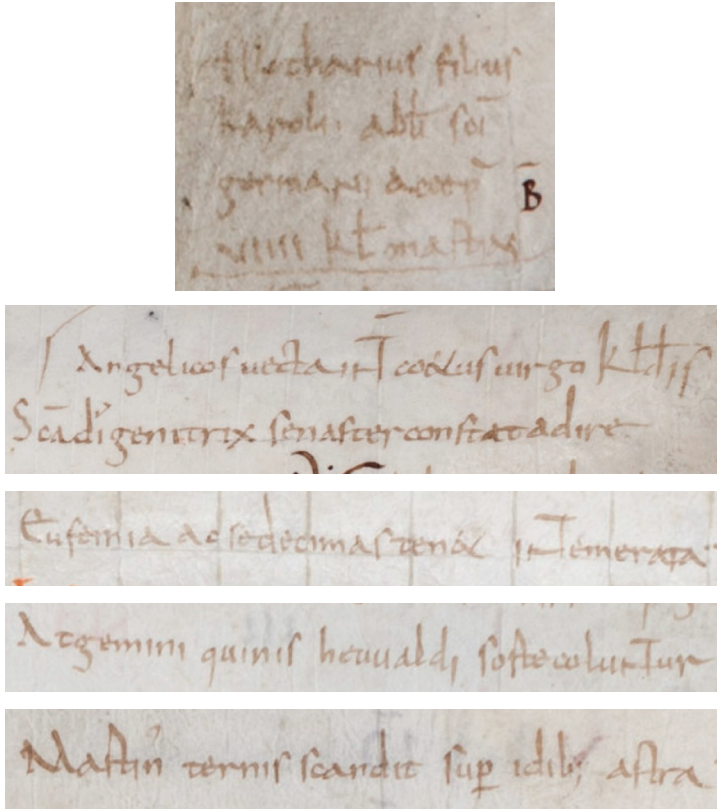 Hlotharius filius
karoli abb̄ sc̄i
germani accep̄
B̄
viiii kl̄ martias
Angelicos uecta int̄ coetus uirgo kl̄dis
Sc̄a di genitrix senas ter constat adire
Eufemia ac sedecimas tenet intemerata
Atgemini quinis heuualdi sorte coluntur
Martin' ternis scandit sup̱ idib; astra